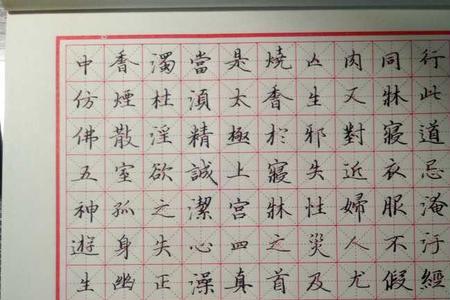 行此道忌淹汙經
同牀寢衣服不假
内又對近婦人尤
亾生邪失性災及
燒香於寢牀之首
是太極上宮四真
當湏精誠潔心澡
濁柱淫欲之失正
香煙散室孤身幽
中仿佛五神遊生